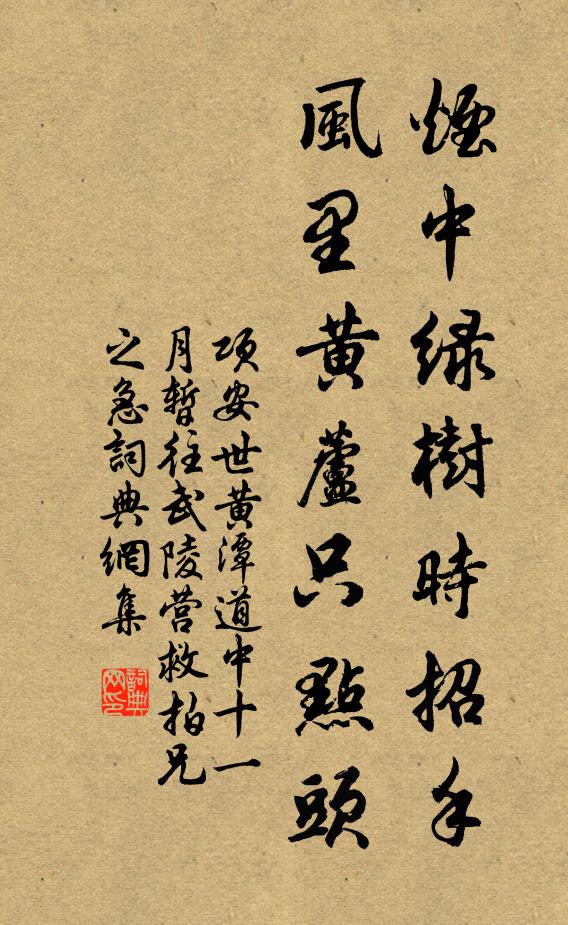 煙中綠樹時招手
風里黃蘆只點頭
項安世黃潭道中十一
月暫往武陵营救拍兄
之急詞典網集
詞典
网印